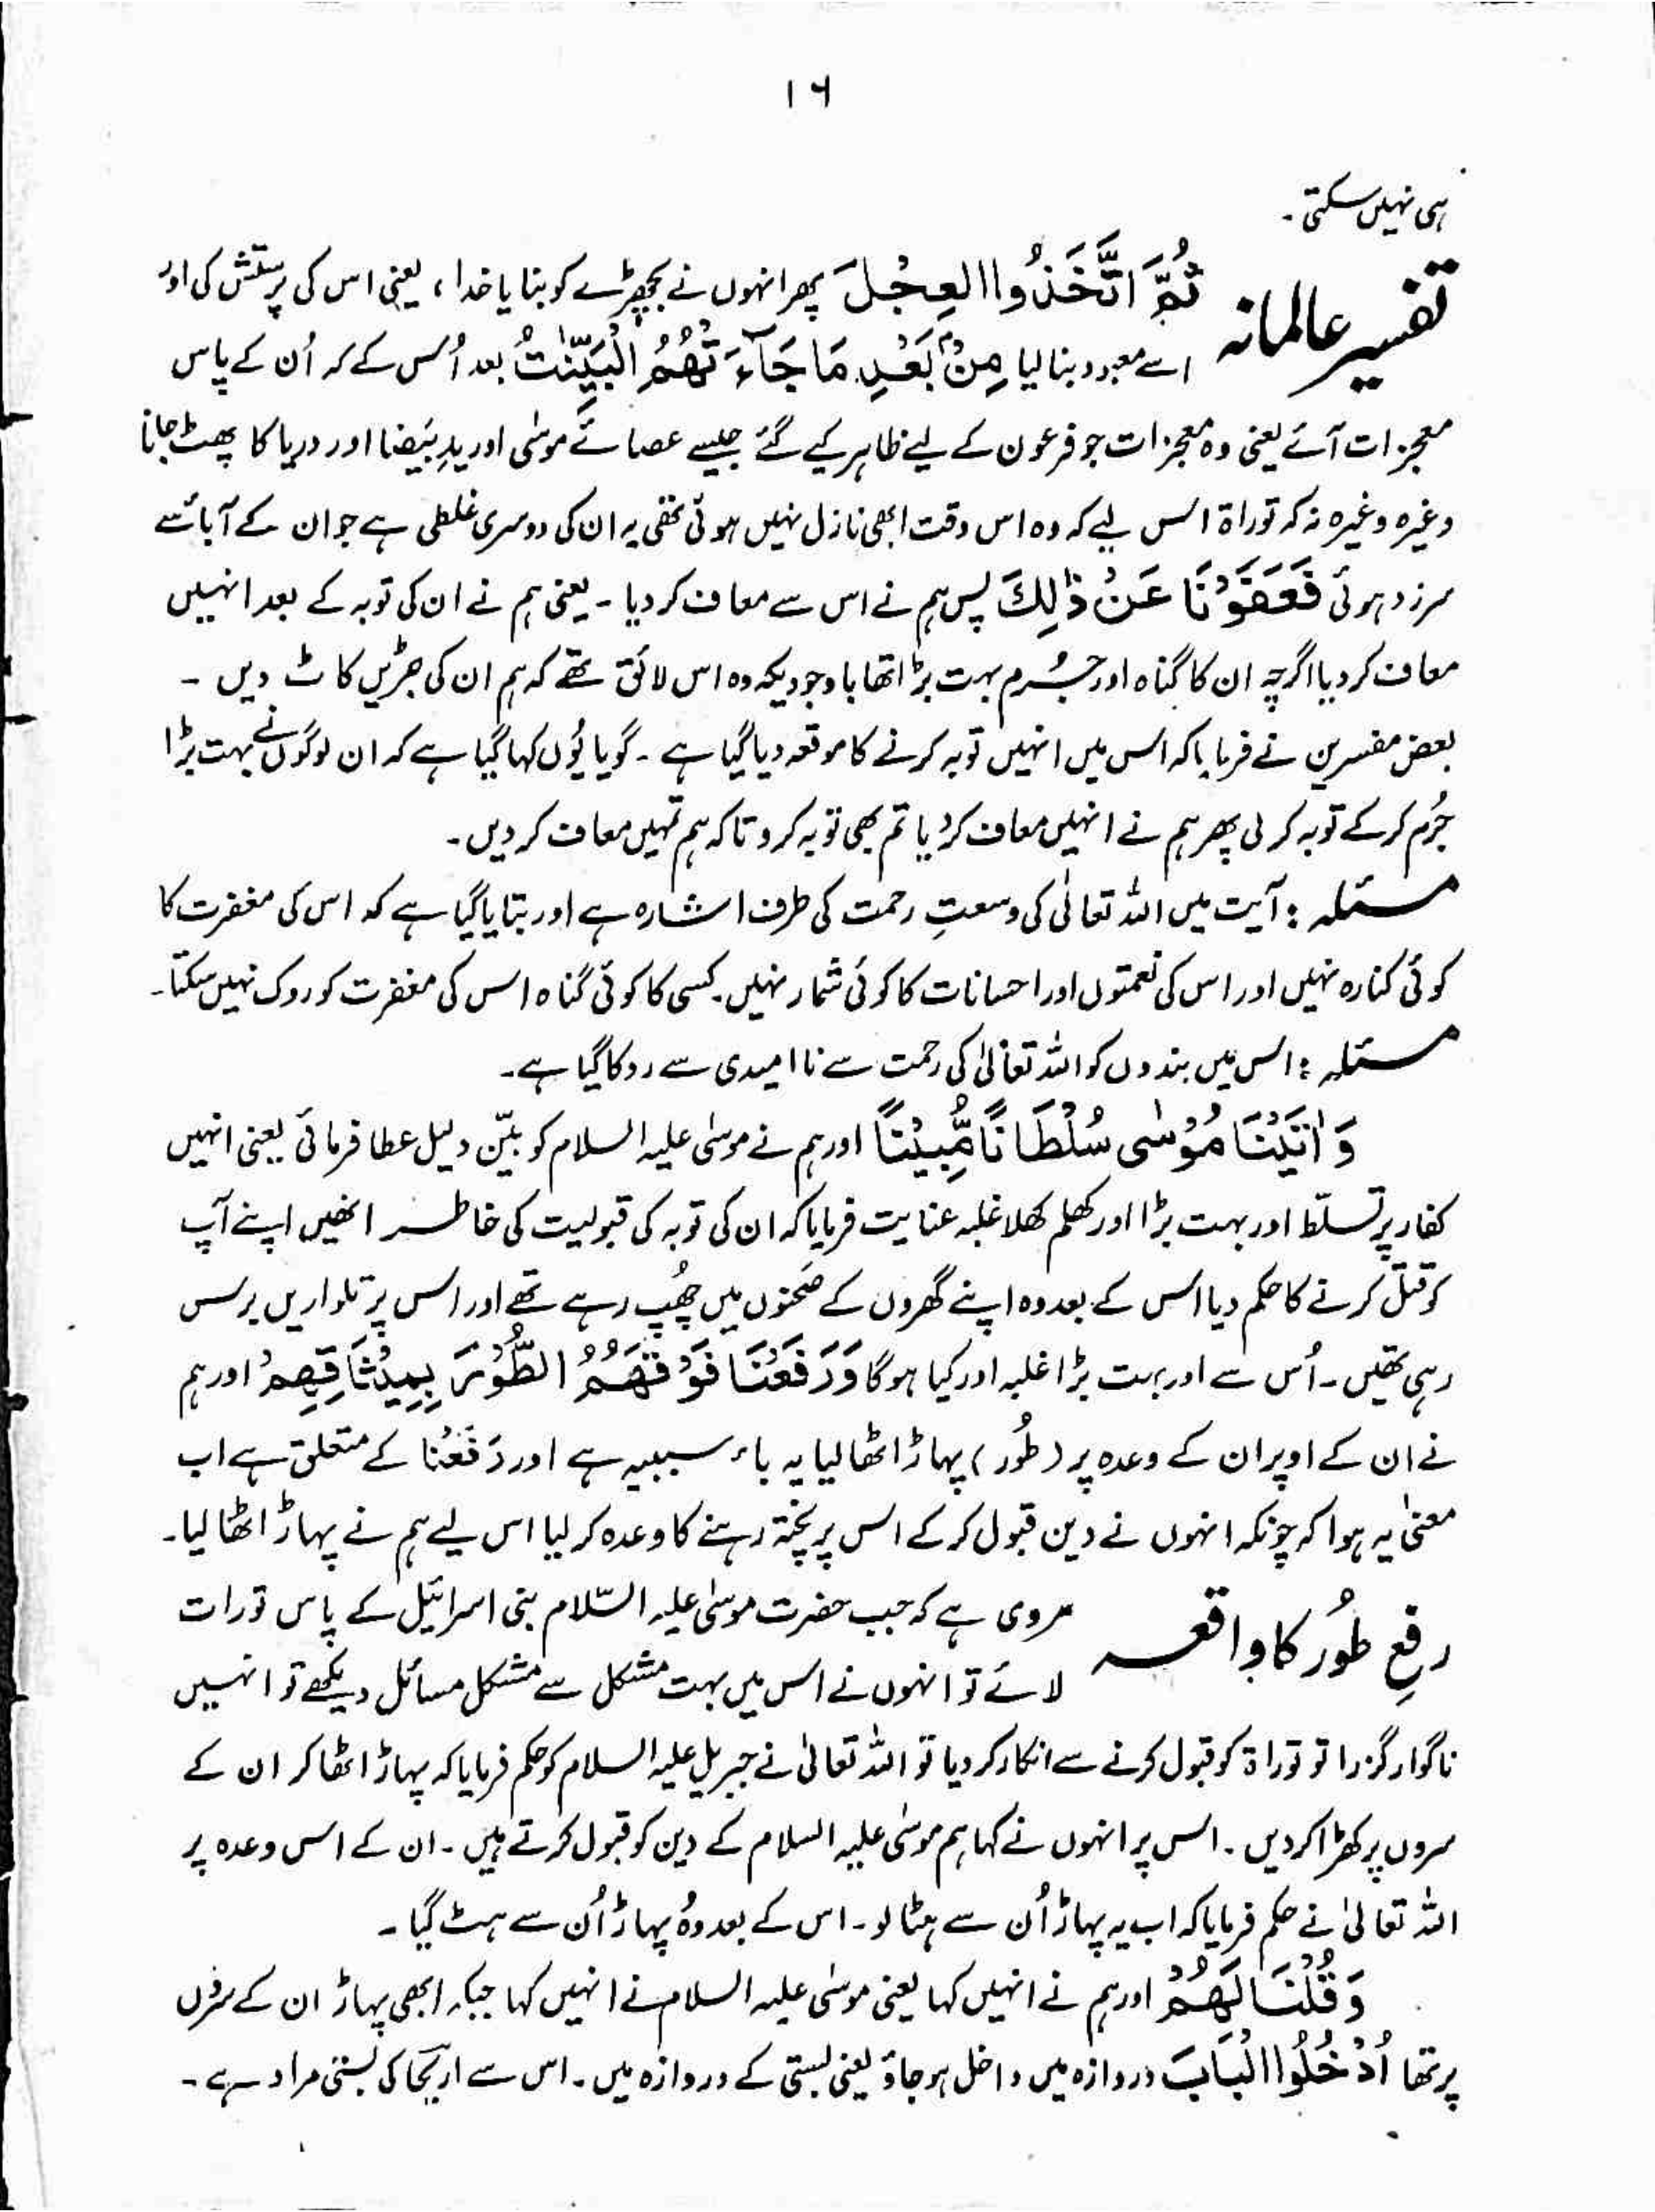 ۱۶
ہی نہیں سکتی۔
تفسیر عالمانہ
ثُمَّ اتَّخَذُوا الْعِجْلَ پھر انہوں نے بچھڑے کو بنایا خدا، یعنی اس کی پرستش کی اور
اسے معبود بنا لیا مِنْۢ بَعْدِ مَا جَآءَتْهُمُ الْبَيِّنٰتُ بعد اُس کے کہ اُن کے پاس
معجزات آئے یعنی وہ معجزات جو فرعون کے لیے ظاہر کیے گئے جیسے عصائے موسٰی اور یدِ بَیضا اور دریا کا پھٹ جانا
وغیرہ وغیرہ نہ کہ توراۃ اس لیے کہ وہ اس وقت ابھی نازل نہیں ہوئی تھی یہ ان کی دوسری غلطی ہے جو ان کے آباء سے
سرزد ہوئی فَعَفَوْنَا عَنْ ذٰلِكَ پس ہم نے اس سے معاف کر دیا۔ یعنی ہم نے ان کی توبہ کے بعد انہیں
معاف کر دیا اگرچہ ان کا گناہ اور جُرم بہت بڑا تھا باوجودیکہ وہ اس لائق تھے کہ ہم ان کی جڑیں کاٹ دیں۔
بعض مفسرین نے فرمایا کہ اس میں انہیں توبہ کرنے کا موقعہ دیا گیا ہے۔ گویا یُوں کہا گیا ہے کہ ان لوگوں نے بہت بڑا
جُرم کر کے توبہ کر لی پھر ہم نے انہیں معاف کر دیا تم بھی توبہ کرو تاکہ ہم تمہیں معاف کر دیں۔
مسئلہ : آیت میں اللہ تعالٰی کی وسعتِ رحمت کی طرف اشارہ ہے اور بتایا گیا ہے کہ اس کی مغفرت کا
کوئی کنارہ نہیں اور اس کی نعمتوں اور احسانات کا کوئی شمار نہیں۔ کسی کا کوئی گناہ اس کی مغفرت کو روک نہیں سکتا۔
مسئلہ : اس میں بندوں کو اللہ تعالٰی کی رحمت سے ناامیدی سے روکا گیا ہے۔
وَاٰتَيْنَا مُوْسٰى سُلْطَانًا مُّبِيْنًا اور ہم نے موسٰی علیہ السلام کو بیّن دلیل عطا فرمائی یعنی انہیں
کفار پر تسلّط اور بہت بڑا اور کھلم کھلا غلبہ عنایت فرمایا کہ ان کی توبہ کی قبولیت کی خاطر انھیں اپنے آپ
کو قتل کرنے کا حکم دیا اس کے بعد وہ اپنے گھروں کے صَحنوں میں چُھپ رہے تھے اور اس پر تلواریں برس
رہی تھیں۔ اُس سے اور بہت بڑا غلبہ اور کیا ہوگا وَرَفَعْنَا فَوْقَهُمُ الطُّوْرَ بِمِيْثَاقِهِمْ اور ہم
نے ان کے اوپر ان کے وعدہ پر (طُور) پہاڑ اٹھا لیا یہ باء سببیہ ہے اور رَفَعْنَا کے متعلق ہے اب
معنٰی یہ ہوا کہ چونکہ انہوں نے دین قبول کر کے اس پر پختہ رہنے کا وعدہ کر لیا اس لیے ہم نے پہاڑ اٹھا لیا۔
رفعِ طُور کا واقعہ
مروی ہے کہ جب حضرت موسٰی علیہ السّلام بنی اسرائیل کے پاس تورات
لائے تو انہوں نے اس میں بہت مشکل سے مشکل مسائل دیکھے تو انہیں
ناگوار گزرا تو توراۃ کو قبول کرنے سے انکار کر دیا تو اللہ تعالٰی نے جبریل علیہ السلام کو حکم فرمایا کہ پہاڑ اٹھا کر ان کے
سروں پر کھڑا کر دیں۔ اس پر انہوں نے کہا ہم موسٰی علیہ السلام کے دین کو قبول کرتے ہیں۔ ان کے اس وعدہ پر
اللہ تعالٰی نے حکم فرمایا کہ اب یہ پہاڑ اُن سے ہٹا لو۔ اس کے بعد وہُ پہاڑ اُن سے ہٹ گیا۔
وَقُلْنَا لَهُمْ اور ہم نے انہیں کہا یعنی موسٰی علیہ السلام نے انہیں کہا جبکہ ابھی پہاڑ ان کے سروں
پر تھا اُدْخُلُوا الْبَابَ دروازہ میں داخل ہو جاؤ یعنی بستی کے دروازہ میں۔ اس سے اریحا کی بستی مراد ہے۔